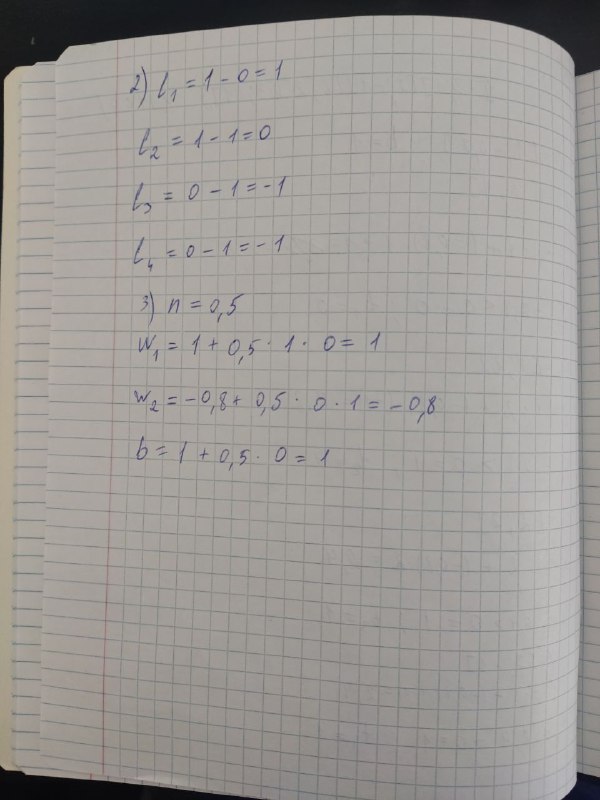 2) l₁ = 1 - 0 = 1
l₂ = 1 - 1 = 0
l₃ = 0 - 1 = -1
l₄ = 0 - 1 = -1
3) n = 0,5
W₁ = 1 + 0,5 · 1 · 0 = 1
W₂ = -0,8 + 0,5 · 0 · 1 = -0,8
b = 1 + 0,5 · 0 = 1